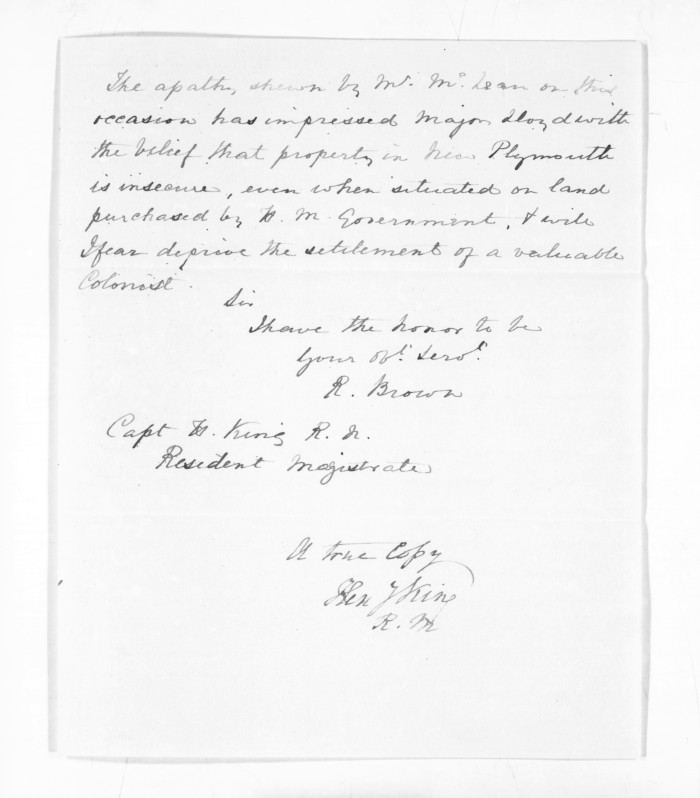 The apathy shewn by Mr. McLean on this
occasion has impressed Major Lloyd with
the belief that property in New Plymouth
is insecure, even when situated on land
purchased by H. M. Government, & will
I fear deprive the settlement of a valuable
Colonist.
Sir
I have the honor to be
Your obt. Servt.
R. Brown
Capt H. King R. N.
Resident Magistrate
A true Copy
Hen King
R. M